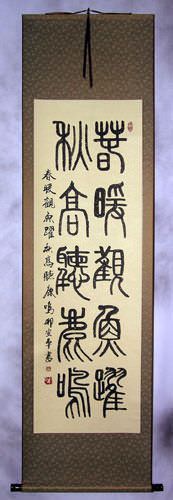 春暖觀魚躍
秋高聽鹿鳴
春暖觀魚躍秋高聽鹿鳴